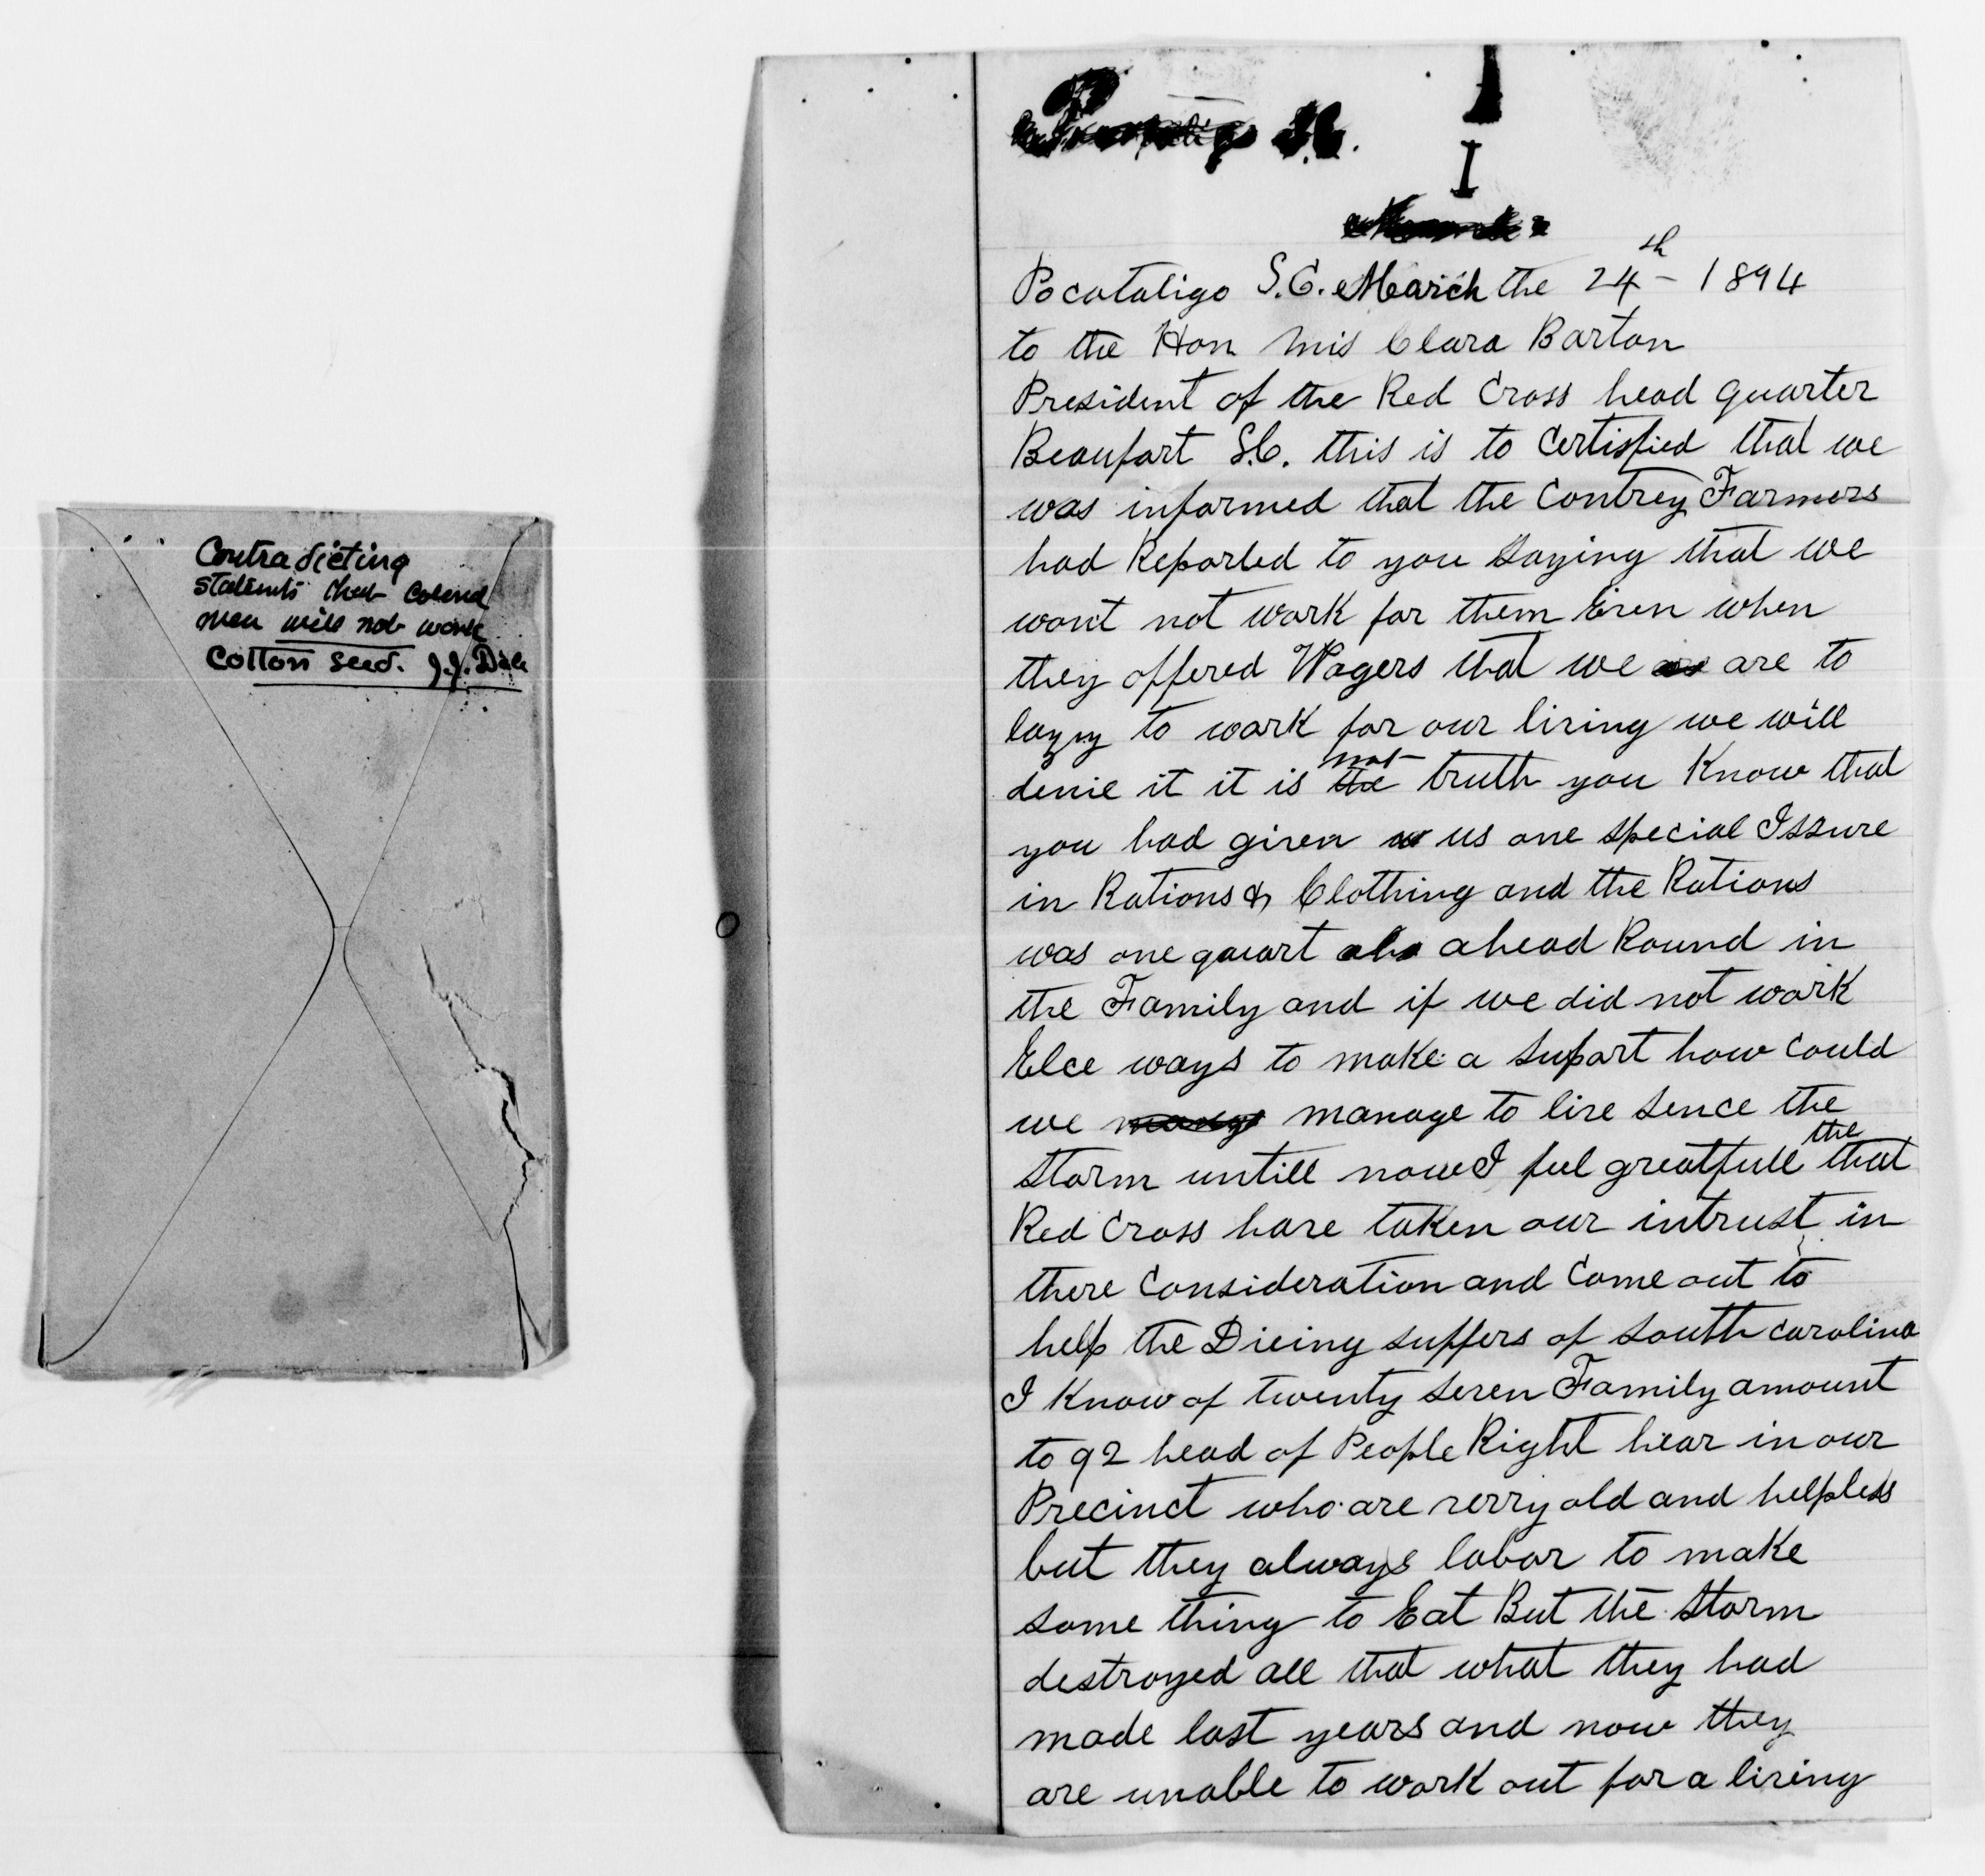 Contradicting
statents that Colored
men will not work
Cotton seed. J.J. Dale
S.C.
I
Pocotaligo S.C. March the 24th - 1894
to the Hon Mis Clara Barton
President of the Red Cross head quarter
Beaufort S.C. this is to Certisfied that we
was informed that the Contrey Farmers
had Reported to you Saying that we
wont not work for them Even when
they offered Wagers that we are to
lazy to work for our living we will
denie it it is not the truth you Know that
you had given us one special Issure
in Rations & Clothing and the Rations
was one quart ahead Round in
the Family and if we did not work
Elce ways to make a suport how could
we manage to live sence the
Storm untill now I feel greatfull the that
Red Cross have taken our intrust in
there Consideration and Come out to
help the Dieing suffers of South carolina
I Know of twenty seven Family amount
to 92 head of People Right hear in our
Precinct who are verry old and helpless
but they always labor to make
some thing to Eat But the Storm
destroyed all that what they had
made last years and now they
are unable to work out for a living